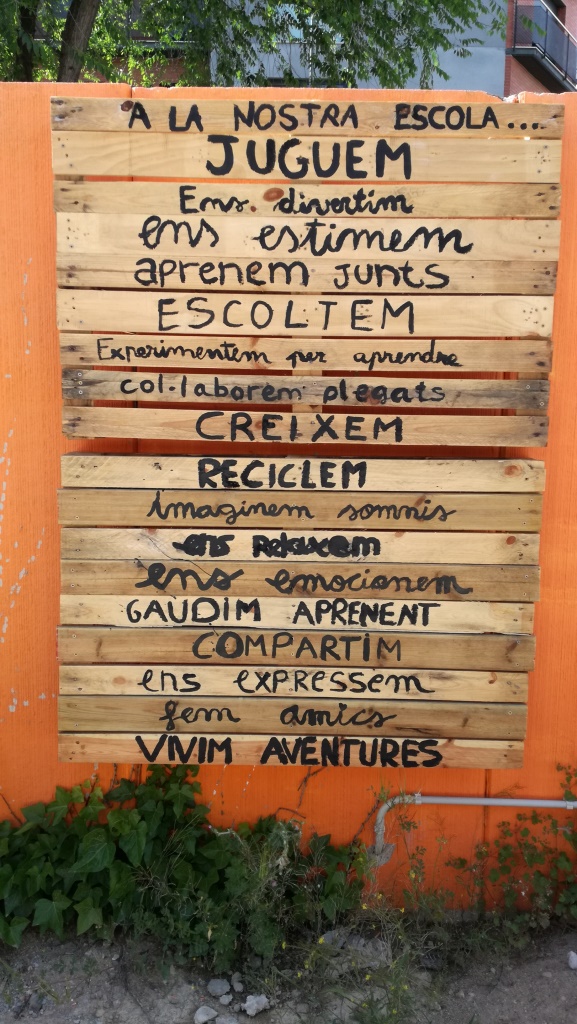 A LA NOSTRA ESCOLA...
JUGUEM
Ens divertim
ens estimem
aprenem junts
ESCOLTEM
Experimentem per aprendre
col·laborem plegats
CREIXEM
RECICLEM
imaginem somnis
ens relaxem
ens emocionem
GAUDIM APRENENT
COMPARTIM
ens expressem
fem amics
VIVIM AVENTURES